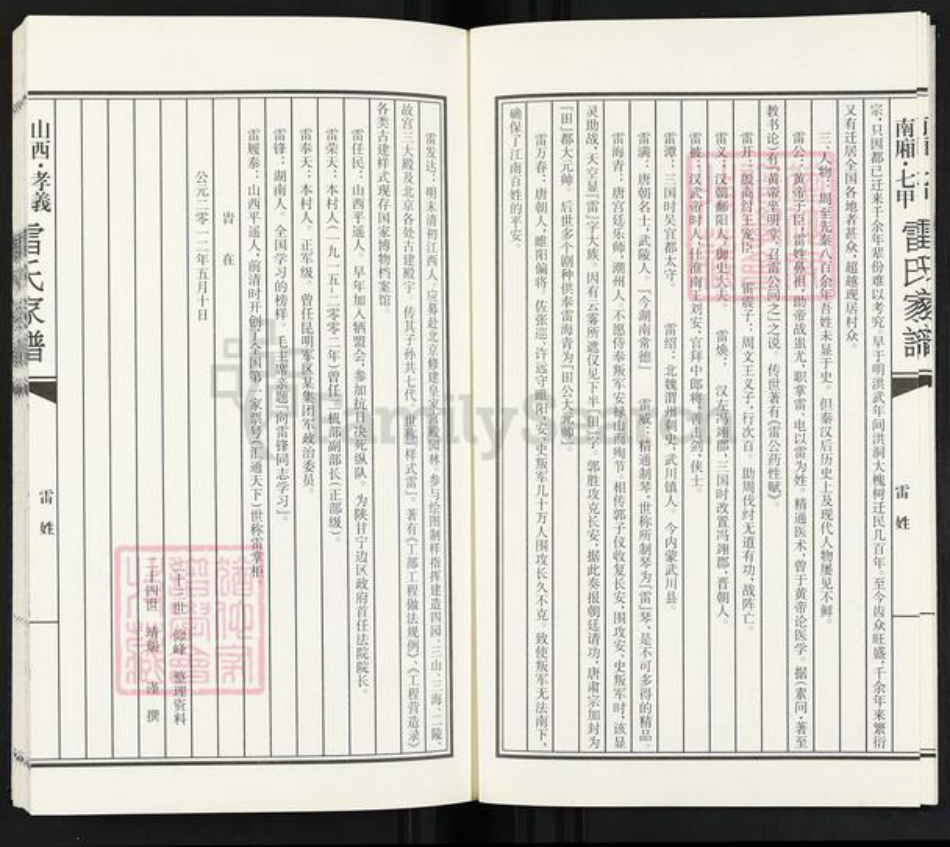 南厢·七甲 雷氏家譜
雷姓
宗，只因都已迁来千余年辈份难以考究。早于明洪武年间洪洞大槐树迁民几百年。至今齿众旺盛，千余年来繁衍
又有迁居全国各地者甚众，超越现居村众。
三、人物：周至先秦八百余年吾姓未显于史。但秦汉后历史上及现代人物屡见不鲜。
雷公：黄帝子臣，雷姓鼻祖，助帝战蚩尤，职掌雷、电以雷为姓。精通医术，曾于黄帝论医学。据《素问·著至
教书论》有「黄帝坐明堂，召雷公问之」之说。传世著有《雷公药性赋》。
雷开：殷商纣王宠臣 雷震子：周文王义子，行次百。助周伐纣无道有功，战阵亡。
雷义：汉朝鄱阳人，御史大夫。 雷焕：汉左冯翊郡，三国时改置冯翊郡，晋朝人。
雷被：汉武帝时人，仕淮南王刘安，官拜中郎将，善击剑，侠士。
雷潭：三国时吴宜都太守。 雷绍：北魏渭州刺史，武川镇人。今内蒙武川县。
雷满：唐朝名士，武陵人。「今湖南常德」 雷威：精通制琴，世称所制琴为「雷」琴，是不可多得的精品。
雷海青：唐宫廷乐师，潮州人。不愿侍奉叛军安禄山而殉节。相传郭子仪收复长安，围攻安、史叛军时，该显
灵助战，天空显「雷」字大旗。因有云雾所遮仅见下半「田」字。郭胜攻克长安，据此奏报朝廷请功，唐肃宗加封为
「田」都大元帅。后世多个剧种供奉雷海青为「田公大元帅」。
雷万春：唐朝人，睢阳偏将，佐张巡、许远守睢阳，安、史叛军几十万人围攻长久不克。致使叛军无法南下，
确保了江南百姓的平安。
雷发达：明末清初江西人，应募赴北京修建皇家宫殿园林。参与绘图制样指挥建造四园、三山、三海、二陵、
故宫三大殿及北京各处古建殿宇。传其子孙共七代。世称「样式雷」。著有《工部工程做法规例》、《工程营造录》
各类古建样式现存国家博物档案馆。
雷任民：山西平遥人。早年加入牺盟会，参加抗日决死纵队。为陕甘宁边区政府首任法院院长。
雷荣天：本村人（一九一五-二零零二年）曾任三机部副部长（正部级）。
雷奉天：本村人。正军级。曾任昆明军区某集团军政治委员。
雷锋：湖南人。全国学习的榜样。毛主席亲题「向雷锋同志学习」。
雷履泰：山西平遥人，前清时开创了全国第一家票号（汇通天下）世称雷掌柜
岂在
公元二零一二年五月十日
二十二世 仰峰 整理资料
二十四世 靖编 谨撰
山西·孝義 雷氏家譜
雷姓
FamilySearch